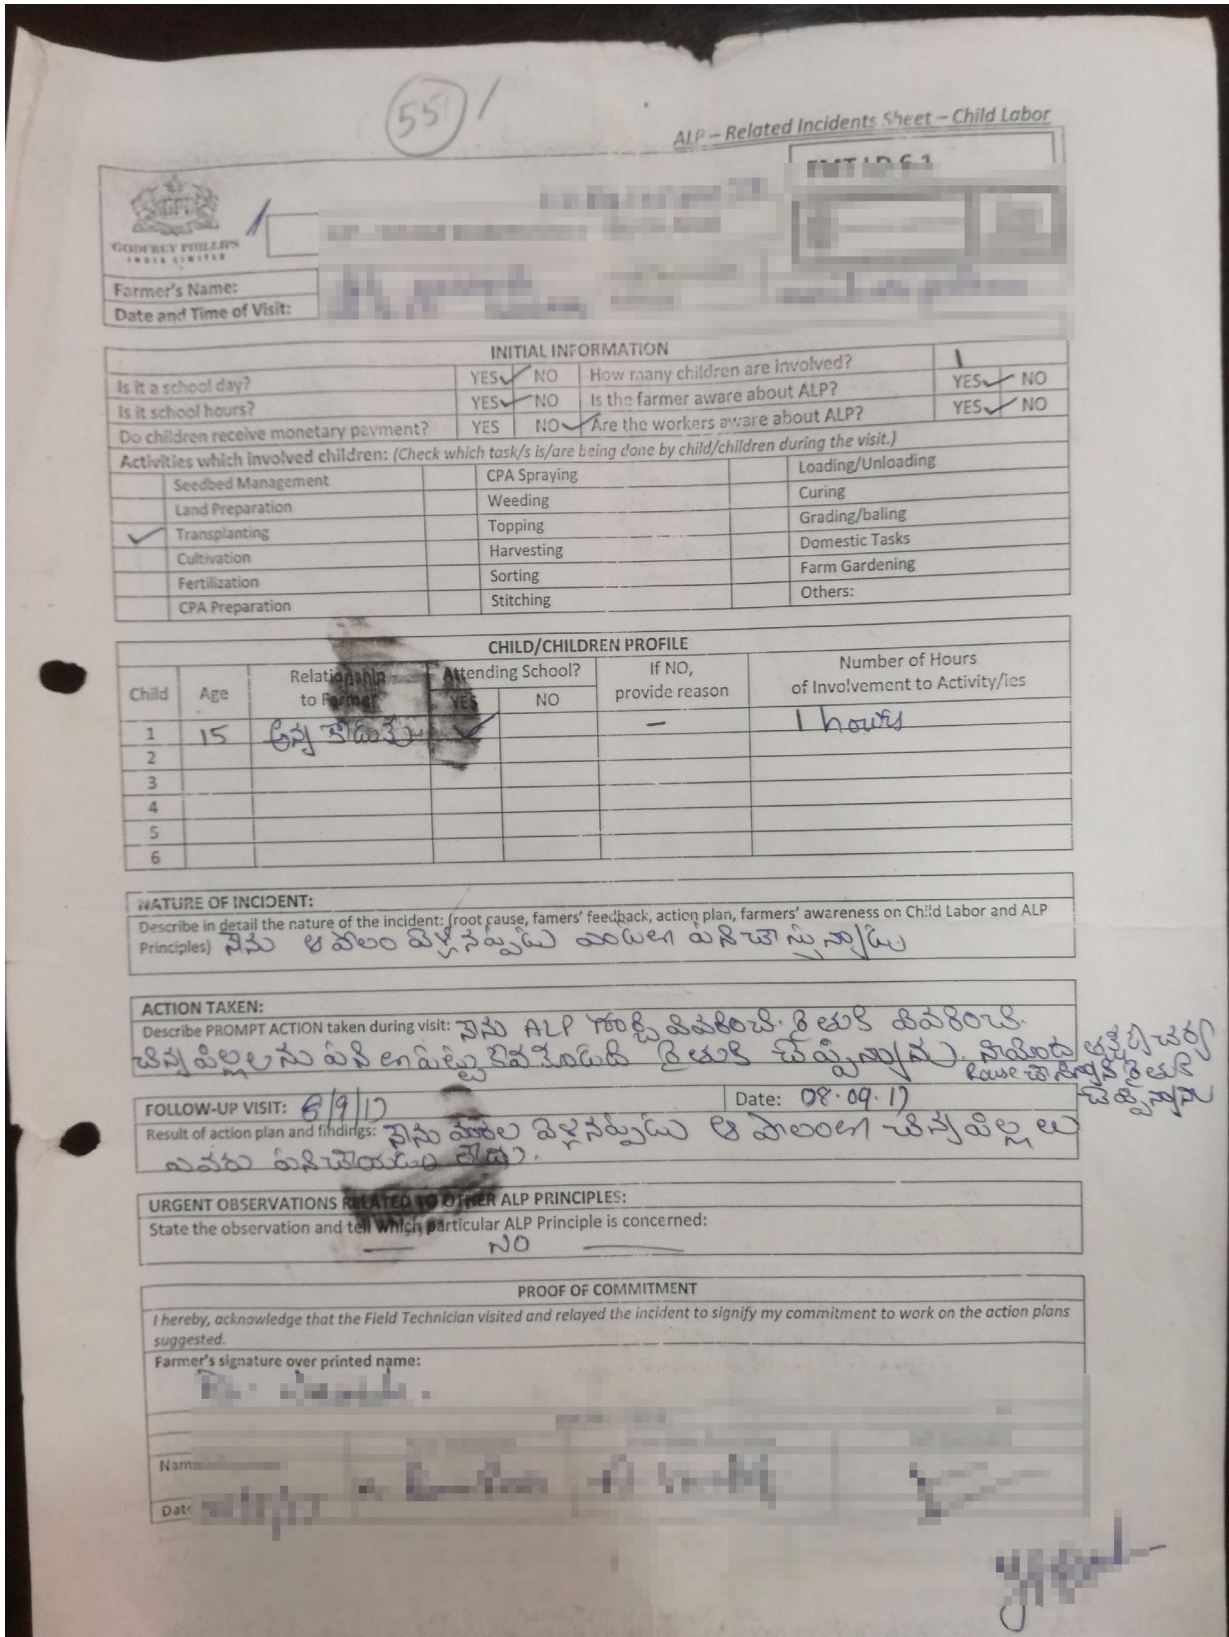 55
ALP – Related Incidents Sheet – Child Labor
GODFREY PHILLIPS
INDIA LIMITED
Farmer's Name:
Date and Time of Visit:
INITIAL INFORMATION
Is it a school day? YES ✓ NO How many children are involved? 1
Is it school hours? YES ✓ NO Is the farmer aware about ALP? YES ✓ NO
Do children receive monetary payment? YES NO ✓ Are the workers aware about ALP? YES ✓ NO
Activities which involved children: (Check which task/s is/are being done by child/children during the visit.)
Seedbed Management CPA Spraying Loading/Unloading
Land Preparation Weeding Curing
✓ Transplanting Topping Grading/baling
Cultivation Harvesting Domestic Tasks
Fertilization Sorting Farm Gardening
CPA Preparation Stitching Others:
CHILD/CHILDREN PROFILE
Child Age Relationship to Farmer Attending School? If NO, provide reason Number of Hours of Involvement to Activity/ies
YES NO
1 15 అన్న కొడుకు ✓ – 1 hours
2
3
4
5
6
NATURE OF INCIDENT:
Describe in detail the nature of the incident: (root cause, famers' feedback, action plan, farmers' awareness on Child Labor and ALP
Principles) నేను ఆ పొలం వెళ్లినప్పుడు పనిచేస్తున్నాడు
ACTION TAKEN:
Describe PROMPT ACTION taken during visit: నేను ALP గురించి వివరించి. రైతుకి వివరించి.
చిన్నపిల్లలను పనిలో పెట్టుకొవకూడదని రైతుకి చెప్పినాను.
రైతుకి
చెప్పినాను
FOLLOW-UP VISIT: 8/9/17 Date: 08.09.17
Result of action plan and findings: నేను మరల వెళ్లినప్పుడు ఆ పొలంలో చిన్నపిల్లలు
ఎవరు పనిచేయడం లేదు.
URGENT OBSERVATIONS RELATED TO OTHER ALP PRINCIPLES:
State the observation and tell which particular ALP Principle is concerned:
— NO —
PROOF OF COMMITMENT
I hereby, acknowledge that the Field Technician visited and relayed the incident to signify my commitment to work on the action plans
suggested.
Farmer's signature over printed name: